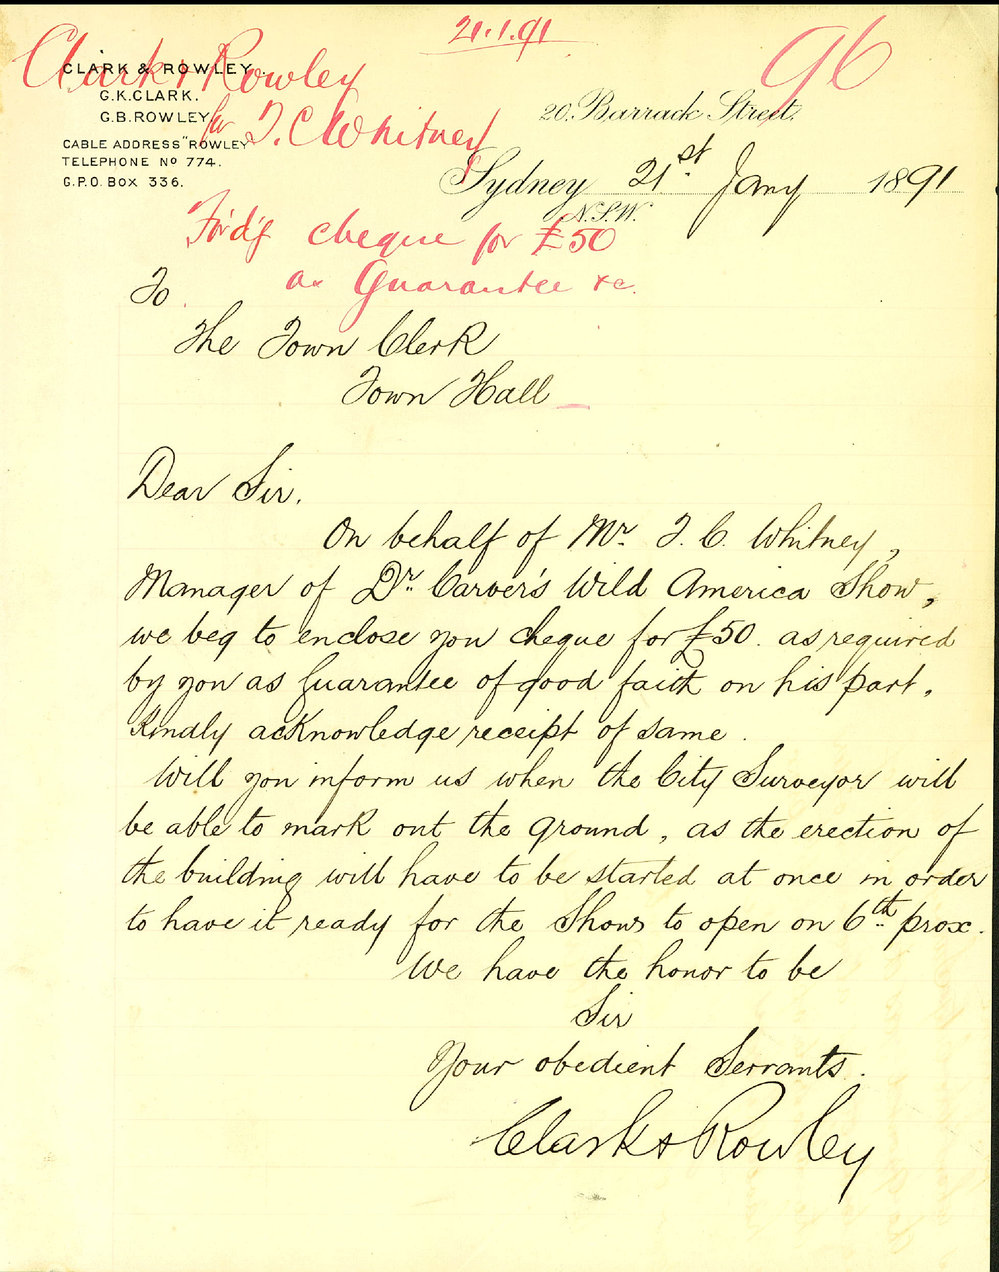 21.1.91
96
Clark & Rowley
for T. C Whitney
CLARK & ROWLEY.
G.K.CLARK.
G.B.ROWLEY.
CABLE ADDRESS "ROWLEY"
TELEPHONE No 774.
G.P.O. BOX 336.
20. Barrack Street.
Sydney 21st Jany 1891
N.S.W.
Fordg cheque for £50
as Guarantee &c.
To
The Town Clerk
Town Hall
Dear Sir.
On behalf of Mr. T. C. Whitney,
Manager of Dr. Carver's Wild America Show,
we beg to enclose you cheque for £50. as required
by you as Guarantee of good faith on his part.
Kindly acknowledge receipt of same.
Will you inform us when the City Surveyor will
be able to mark out the ground, as the erection of
the building will have to be started at once in order
to have it ready for the Shows to open on 6th prox.
We have the honor to be
Sir
Your obedient Servants.
Clark & Rowley